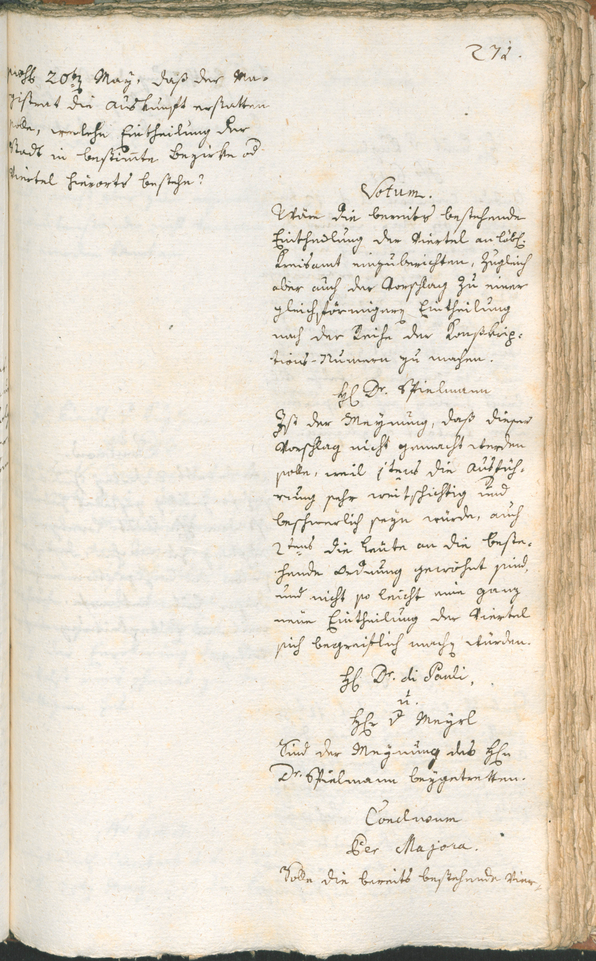 271.
20ten May, daß der Ma-
gistrat die Auskunft erstatten
solle, welche Eintheilung der
Stadt in bestimmte Bezirke od
Viertel hierorts bestehe?
Votum.
Wäre die bereits bestehende
Eintheilung der Viertel an löbl.
Kreisamt einzuberichten, zugleich
aber auch der Vorschlag zu einer
gleichförmigern Eintheilung
nach der Reihe der Konskrip-
tions-Numern zu machen.
H. Dr. Spielmann
Ist der Meynung, daß dieser
Vorschlag nicht gemacht werden
solle, weil 1tens die Ausfüh-
rung sehr weitschichtig und
beschwerlich seyn würde, auch
2tens die Leute an die beste-
hende Ordnung gewöhnt sind,
und nicht so leicht eine ganz
neue Eintheilung der Viertel
sich begreiflich machen würden.
H. Dr. di Pauli,
u.
Hr. D. Meyrl
Sind der Meynung des Hrn
Dr. Spielmann beygetretten.
Conclusum
Per Majora.
Solle die bereits bestehende Vier-